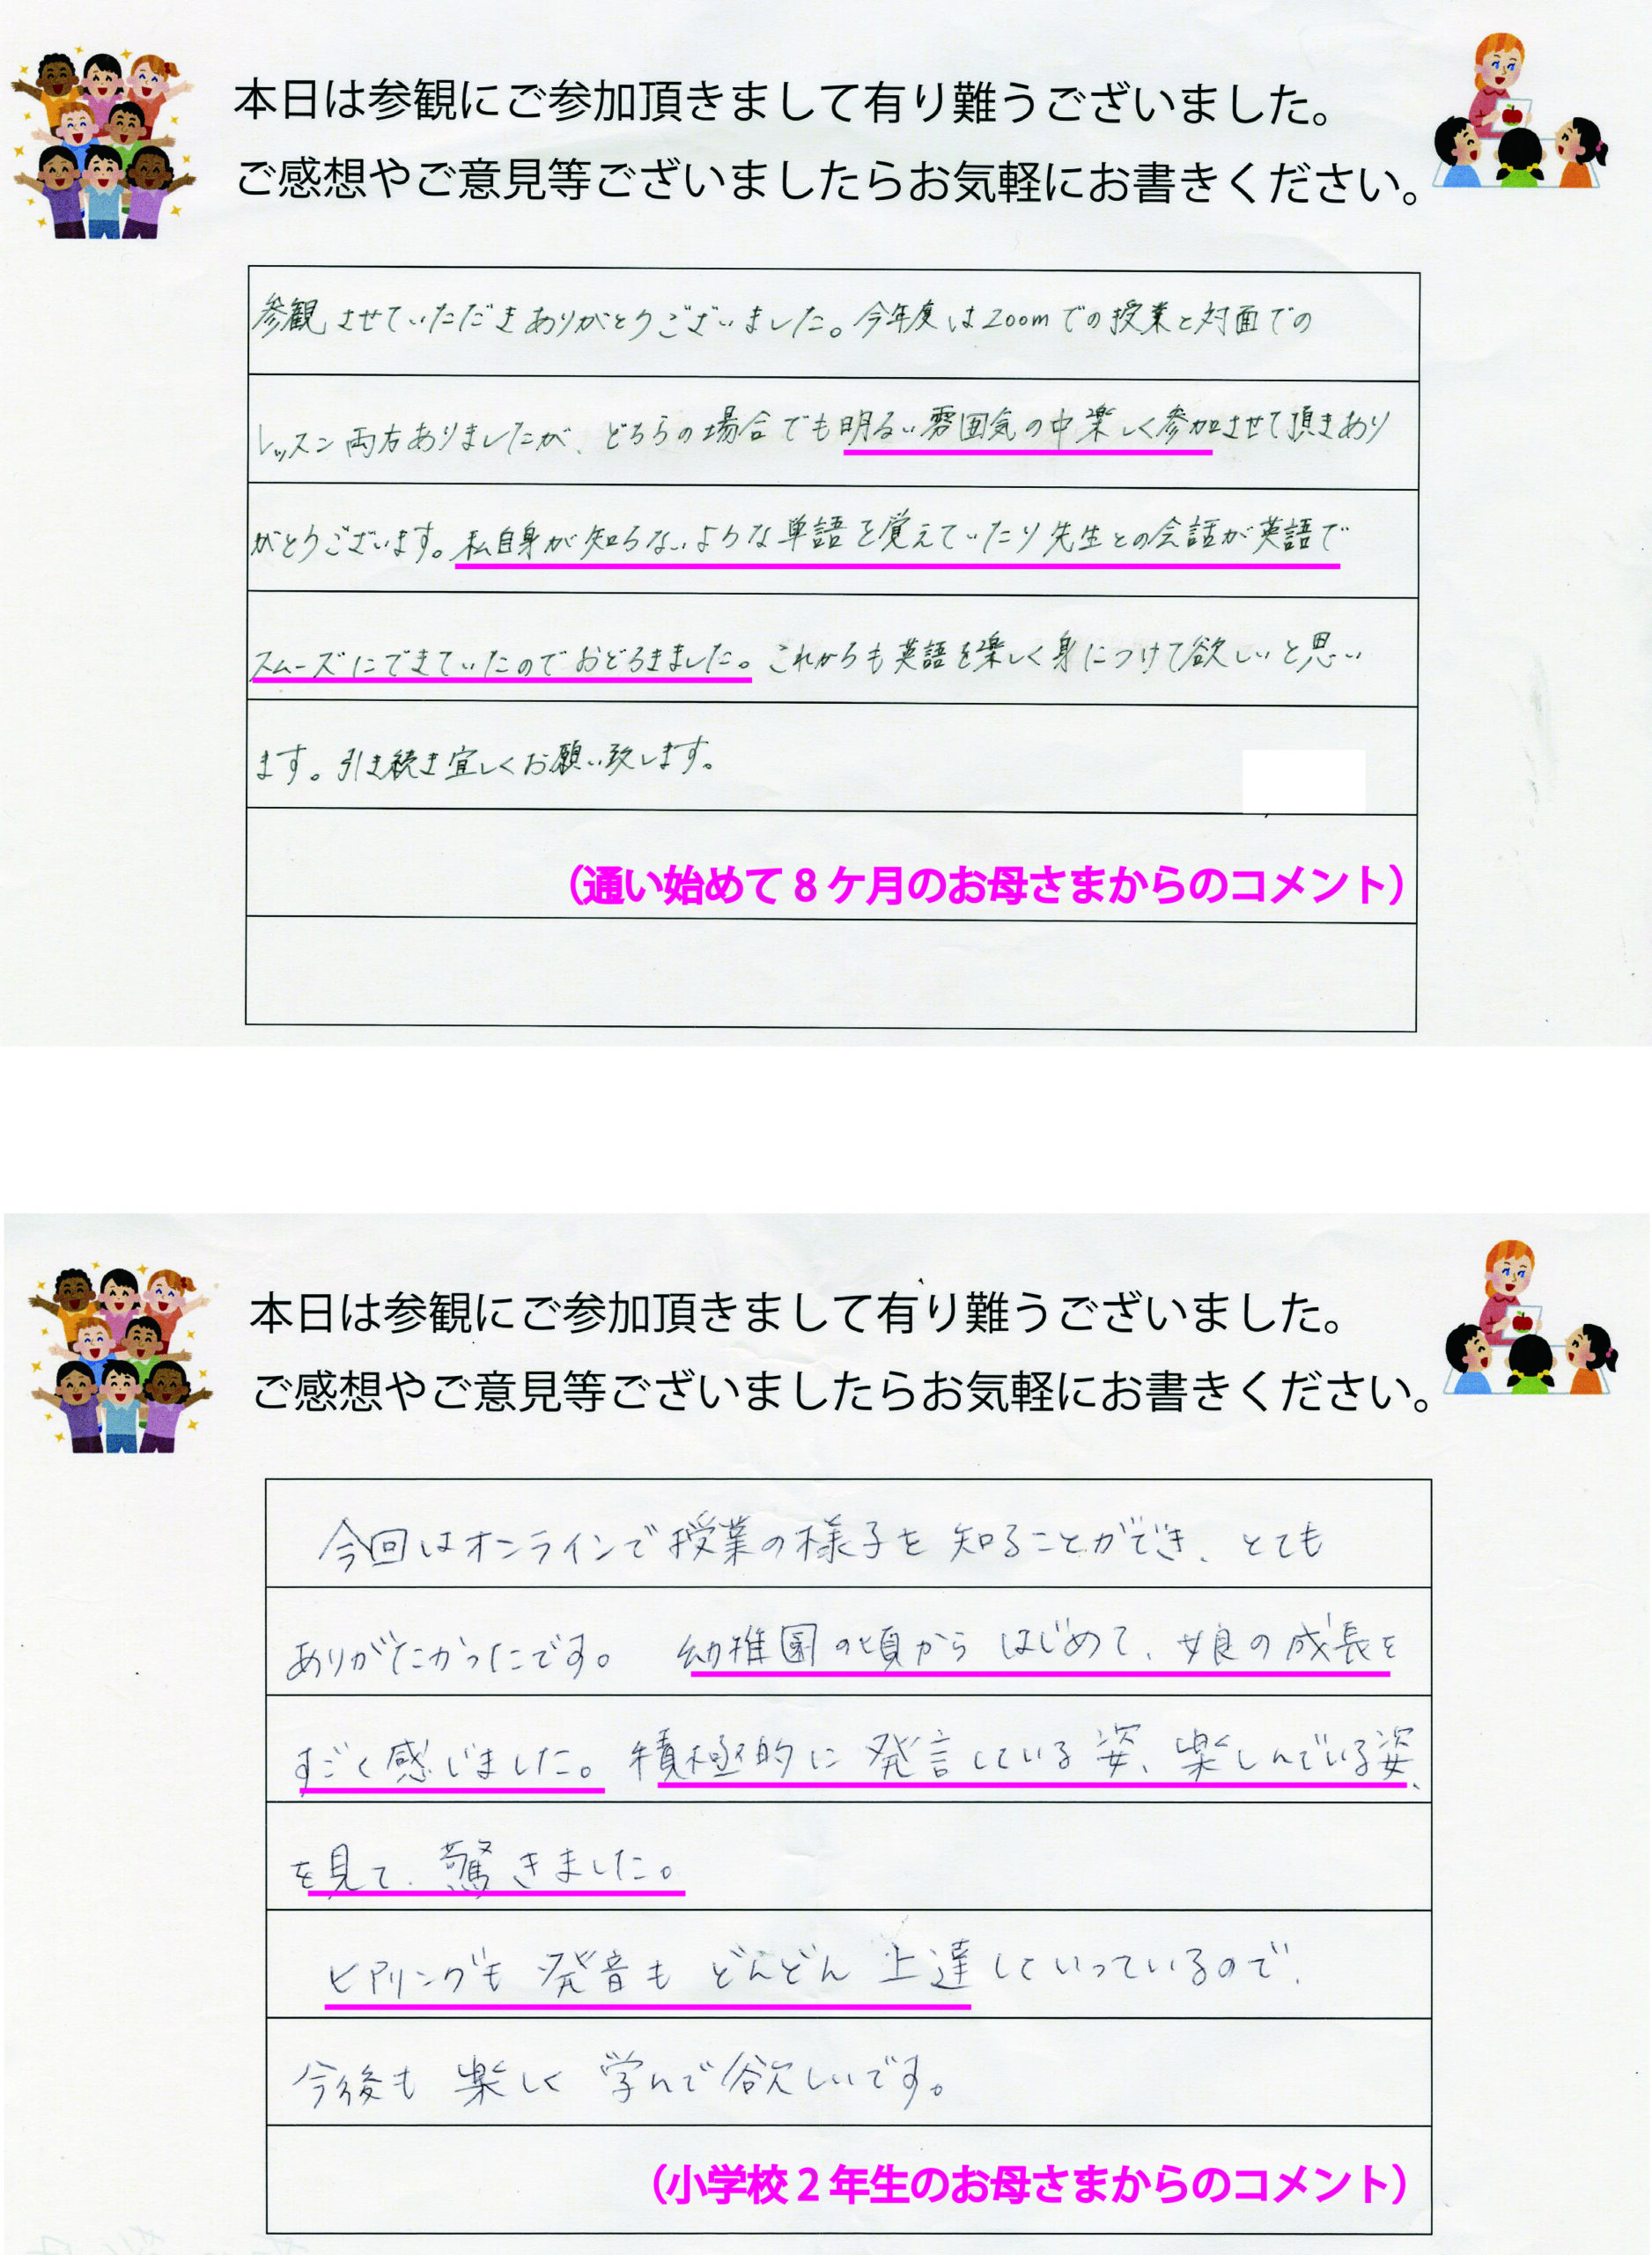 本日は参観にご参加頂きまして有り難うございました。
ご感想やご意見等ございましたらお気軽にお書きください。
参観させていただきありがとうございました。今年度はzoomでの授業と対面での
レッスン両方ありましたが、どちらの場合でも明るい雰囲気の中楽しく参加させて頂きあり
がとうございます。私自身が知らないような単語を覚えていたり先生との会話が英語で
スムーズにできていたのでおどろきました。これからも英語を楽しく身につけて欲しいと思い
ます。引き続き宜しくお願い致します。
（通い始めて8ケ月のお母さまからのコメント）
本日は参観にご参加頂きまして有り難うございました。
ご感想やご意見等ございましたらお気軽にお書きください。
今回はオンラインで授業の様子を知ることができ、とても
ありがたかったです。幼稚園の頃からはじめて、娘の成長を
すごく感じました。積極的に発言している姿、楽しんでいる姿、
を見て、驚きました。
ヒアリングも発音もどんどん上達していっているので、
今後も楽しく学んで欲しいです。
（小学校2年生のお母さまからのコメント）